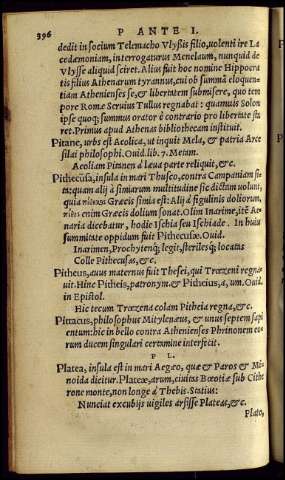 396 P ANTE I.
dedit in socium Telemacho Vlyssis filio, uolenti ire La
cedæmoniam, interrogaturus Menelaum, nunquid de
Vlysse aliquid sciret. Alius fuit hoc nomine Hippocra
tis filius Athenarum tyrannus, cui ob summã eloquen
tiam Athenienses se, & libertatem submisere, quo tem
pore Romæ Seruius Tullus regnabat: quamuis Solon
ipse quoq; summus orator è contrario pro libertate sta
ret. Primus apud Athenas bibliothecam instituit.
Pitane, urbs est Aeolica, ut inquit Mela, & patria Arce
silai philosophi. Ouid. lib. 7. Metam.
Aeoliam Pitanen à læua parte reliquit, &c.
Pithecusa, insula in mari Thusco, contra Campaniam si
ta: quam alij à simiarum multitudine sic dictam uolunt,
quia Græcis simia est: Alij à figulinis doliorum,
enim Græcis dolium sonat. Olim Inarime, itẽ Ae
naria dicebatur, hodie Ischia seu Ischiade. In huius
summitate oppidum fuit Pithecusæ. Ouid.
Inarimen, Prochytenq; legit, sterilesq; locatas
Colle Pithecusas, &c.
Pitheus, auus maternus fuit Thesei, qui Trœzeni regna
uit. Hinc Pitheis, patronym. & Pitheius, a, um. Ouid.
in Epistol.
Hic tecum Trœzena colam Pitheia regna, &c.
Pittacus, philosophus Mitylenæus, & unus septem sapi
entum: hic in bello contra Athenienses Phrinonem eo
rum ducem singulari certamine interfecit.
P L.
Platea, insula est in mari Aegæo, quæ & Paros & Mi
noida dicitur. Plateæ, arum, ciuitas Bœotiæ sub Cithe
rone monte, non longe à Thebis. Statius:
Nunciat excubijs uigiles arsisse Plateas, &c.
Plato,